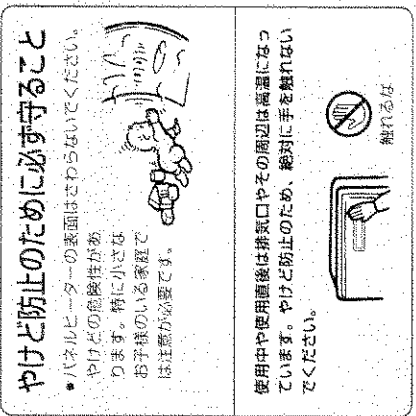 やけど防止のために必ず守ること
●パネルヒーターの表面はさわらないでください。
やけどの危険性があ
ります。特に小さな
お子様のいる家庭で
は注意が必要です。
使用中や使用直後は排気口やその周辺は高温になっ
ています。やけど防止のため、絶対に手を触れない
でください。
触れるな